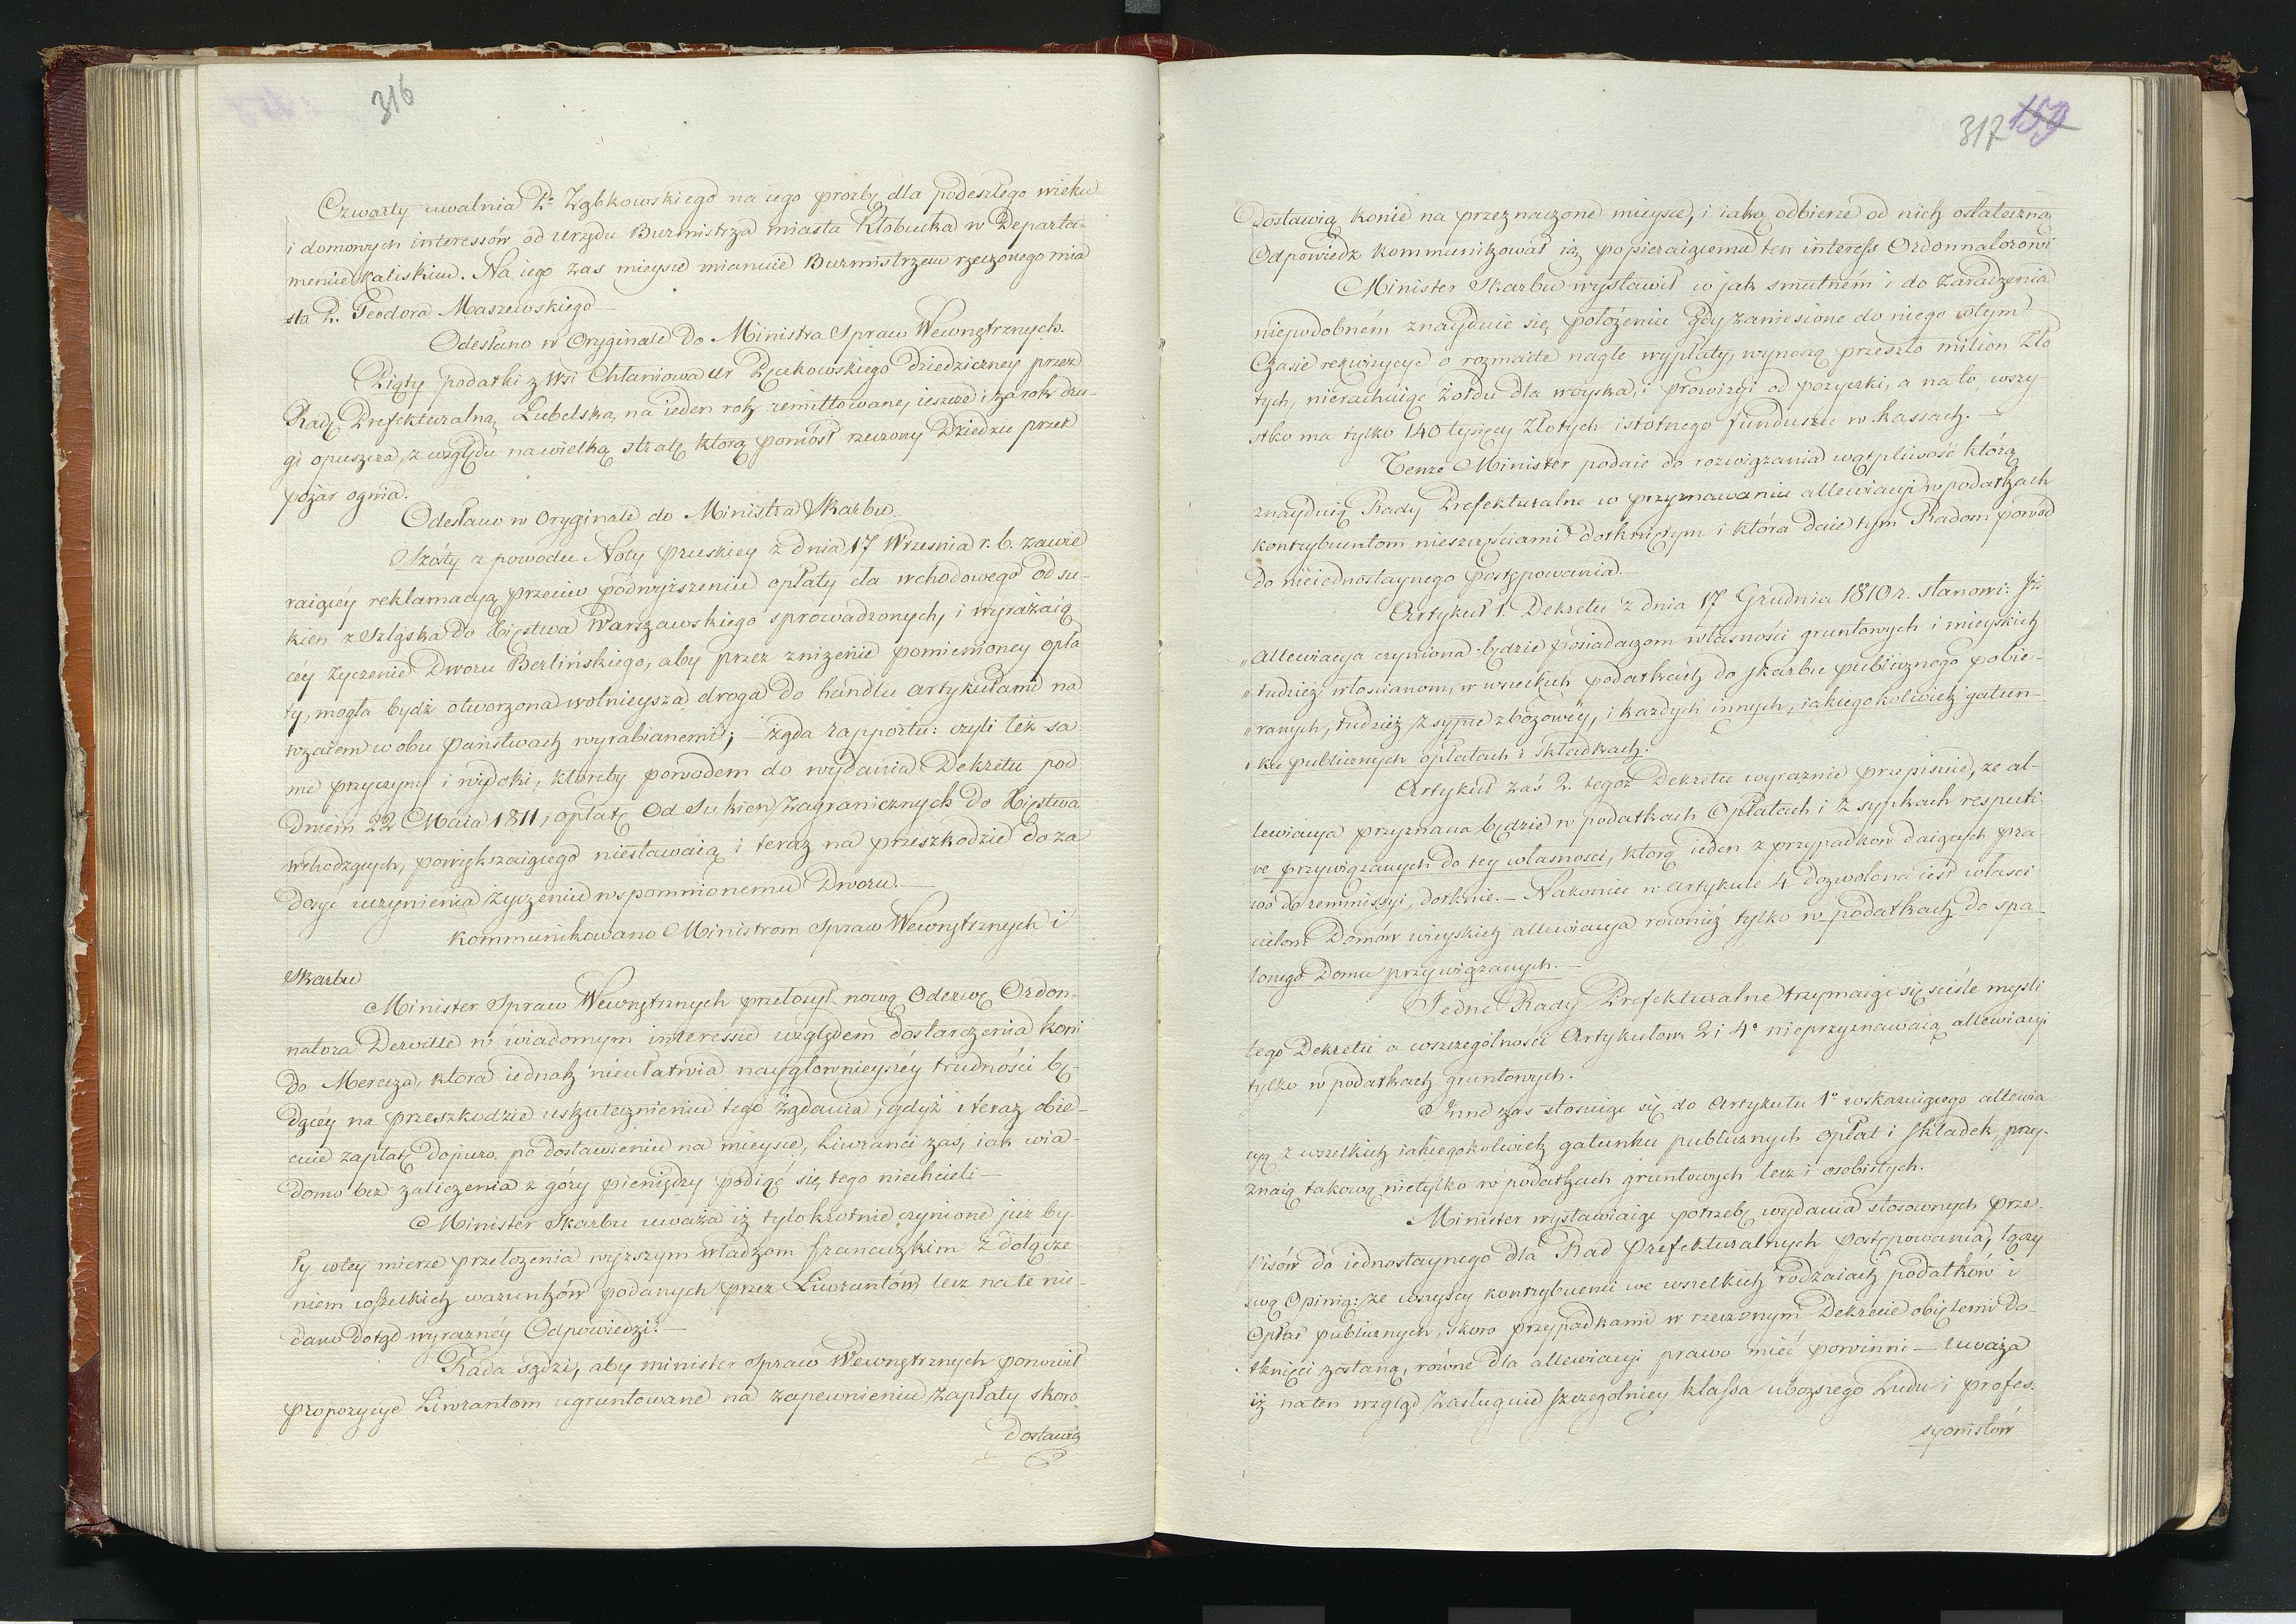 316
Czwarty uwalnia P. Ząbkowskiego na iego prozbę dla podeszłego wieku
i domowych interessów od Urzędu Burmistrza miasta Kłobucka w Departa-
mencie Kaliskim. Na iego zas mieysce mianuie Burmistrzem rzeczonego mia
sta P. Teodora Maszewskiego
Odesłano w Oryginale do Ministra Spraw Wewnętrznych.
Piąty podatki z Wsi Chłaniowa Ur dziedziczney przez
Radę Prefekturalną Lubelską na ieden rok remittowane, ieszcze i za rok dru-
gi opuszcza, z względu na wielką stratę którą poniósł rzeczony Dziedzic przez
pożar ognia.
Odesłano w Oryginale do Ministra Skarbu.
Szósty z powodu Noty pruskiey z dnia 17 Wrzesnia r. b. zawie
raiącéy reklamacyą przeciw podwyższeniu opłaty cła wchodowego od su-
kien z Szląska do Xięstwa Warszawskiego sprowadzonych, i wyrażaią
céy życzenie Dworu Berlińskiego, aby przez zniżenie pomienioney opła
ty, mogła bydź otworzona wolnieysza droga do handlu artykułami na
wzaiem w obu Państwach wyrabianemi; – żąda rapportu: czyli też sa-
me przyczyny i widoki, któreby powodem do wydania Dekretu pod
dniem 22 Maia 1811, opłatę Od Sukien Zagranicznych do Xięstwa
wchodzących, powiększaiącego niestawaią i teraz na przeszkodzie do za
dosyć uczynienia życzeniu wspomnionemu Dworu. —
Kommunikowano Ministrom Spraw Wewnętrznych i
Skarbu
Minister Spraw Wewnętrznych przełożył nową Odezwę Ordon-
natora Derville w wiadomym interessie względem dostarczenia koni
do Merecza, która iednak nieułatwia nayglownieyszéy trudności bę-
dącéy na przeszkodzie uskutecznieniu tego żądania, gdyż i teraz obie-
cuie zapłatę dopiero po dostawieniu na mieysce, Liwranci zaś, iak wia-
domo bez zaliczenia z góry pieniędzy podiąć się tego niechcieli —
Minister Skarbu uważa iż tylokrotnie czynione już by-
ły wtey mierze przełożenia wyższym władzom francuzkim z dołącze
niem wszelkich warunków podanych przez Liwrantów, lecz na te nie-
dano dotąd wyraznéy Odpowiedzi. —
Rada sądzi, aby minister Spraw Wewnętrznych ponowił
propozycye Liwrantom ugruntowane na zapewnieniu zapłaty skoro
dostawią
317 159
Dostawią konie na przeznaczone mieysce, i iaką odbierze od nich ostateczną
Odpowiedz kommunikował ią popieraiącemu ten interess Ordonnatorowi
Minister Skarbu wystawił w jak smutném i do zaradzenia
niepodobném znayduie się położeniu gdy zaniesione do niego wtym
Czasie rekwizycye o rozmaite nagłe wypłaty, wynoszą przeszło milion zło
tych, nierachuiąc żołdu dla woyska, i prowizyi od pożyczki, a na to wszy-
stko ma tylko 140 tysięcy złotych istotnego funduszu w kassach. —
Tenże Minister podaie do rozwiązania wątpliwość którą
znayduią Rady Prefekturalne w przyznawaniu allewiacyi w podatkach
kontrybuentom nieszczęściami dotkniętym i która daie tym Radom powod
do nieiednostaynego postępowania. —
Artykuł 1. Dekretu z dnia 17 Grudnia 1810 r. stanowi: Iż
„allewiacya czyniona będzie posiadaczom własności gruntowych i mieyskich
„tudzież włoscianom, w wszelkich podatkach do skarbu publicznego pobie-
„ranych, tudzież zsypce zbożowéy, i każdych innych, iakiegokolwiek gatun-
„ku publicznych opłatach i składkach.
Artykuł zaś 2. tegoż Dekretu wyraźnie przepisuie, że al-
lewiacya przyznana będzie w podatkach Opłatach i zsypkach respecti
ve przywiązanych do tey własności, którą ieden z przypadków daiących pra-
wo do remissyi, dotknie. — Nakoniec w artykule 4. dozwolona iest własci
cielom Domów wieyskich allewiacya rownież tylko w podatkach do spa-
lonego Domu przywiązanych. —
Jedne Rady Prefekturalne trzymaiąc się ściśle mysli
tego Dekretu a wszczególnosci Artykułow 2 i 4° nieprzyznawaią allewiacyi
tylko w podatkach gruntowych.
Inne zas stosuiąc się do Artykułu 1° wskazuiącego allewia
cyą z wszelkich iakiegokolwiek gatunku publicznych opłat i składek, przy-
znaią takową nietylko w podatkach gruntowych lecz i osobistych.
Minister wystawiaiąc potrzebę wydania stosownych prze-
pisów do iednostaynego dla Rad Prefekturalnych postępowania, łączy
swą Opinią: że wszyscy kontrybuenci we wszelkich rodzaiach podatków i
Opłat publicznych, skoro przypadkami w rzeczonym Dekrecie obiętemi do-
tknięci zostaną, równe dla allewiacyi prawo mieć powinni — Uważa
iż na ten wzgląd zasługuie szczególniey klassa uboższego Ludu i profes-
syonistów